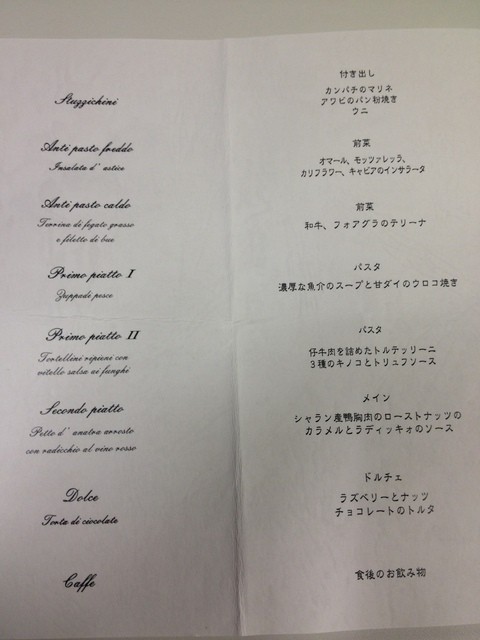 Stuzzichini
Anti pasto freddo
Insalata d' astice
Anti pasto caldo
Terrina di fegato grasso
e filetto di bue
Primo piatto I
Zuppadi pesce
Primo piatto II
Tortellini ripieni con
vitello salsa ai funghi
Secondo piatto
Petto d' anatra arrosto
con radicchio al vino rosso
Dolce
Torta di cioccolate
Caffe
付き出し
カンパチのマリネ
アワビのパン粉焼き
ウニ
前菜
オマール、モッツァレッラ、
カリフラワー、キャビアのインサラータ
前菜
和牛、フォアグラのテリーナ
パスタ
濃厚な魚介のスープと甘ダイのウロコ焼き
パスタ
仔牛肉を詰めたトルテッリーニ
3種のキノコとトリュフソース
メイン
シャラン産鴨胸肉のローストナッツの
カラメルとラディッキォのソース
ドルチェ
ラズベリーとナッツ
チョコレートのトルタ
食後のお飲み物